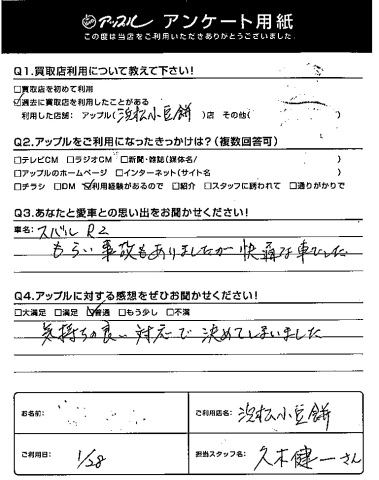 アップル アンケート用紙
この度は当店をご利用いただきありがとうございました。
Q1.買取店利用について教えて下さい!
□買取店を初めて利用
☑過去に買取店を利用したことがある
利用した店舗: アップル(浜松小豆餅)店 その他( )
Q2.アップルをご利用になったきっかけは?(複数回答可)
□テレビCM □ラジオCM □新聞・雑誌(媒体名/ )
□アップルのホームページ □インターネット(サイト名 )
□チラシ □DM ☑利用経験があるので □紹介 □スタッフに誘われて □通りがかりで
Q3.あなたと愛車との思い出をお聞かせください!
車名: スバル R2
もらい事故もありましたが 快適な車でした
Q4.アップルに対する感想をぜひお聞かせください!
□大満足 □満足 ☑普通 □もう少し □不満
気持ちの良い 対応で 決めてしまいました
お名前:
ご利用店名: 浜松小豆餅
ご利用日: 1/28
担当スタッフ名: 久木健一さん